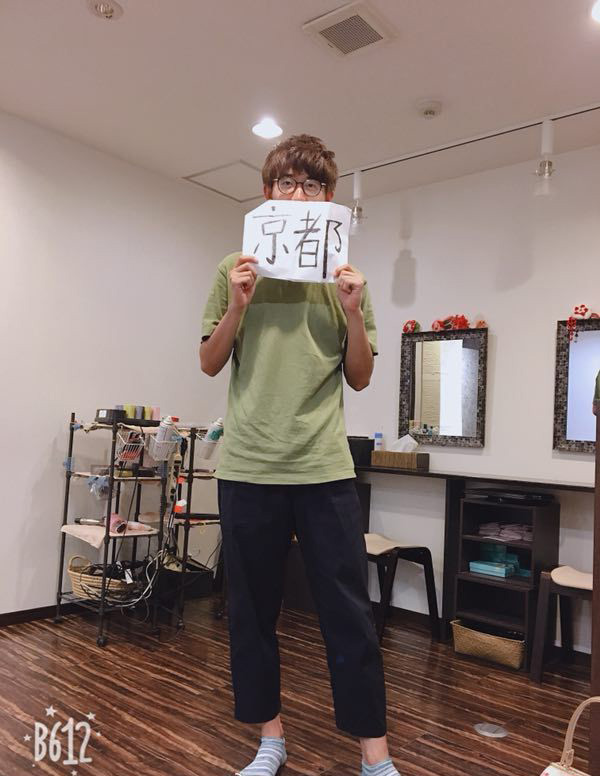 京都
B612